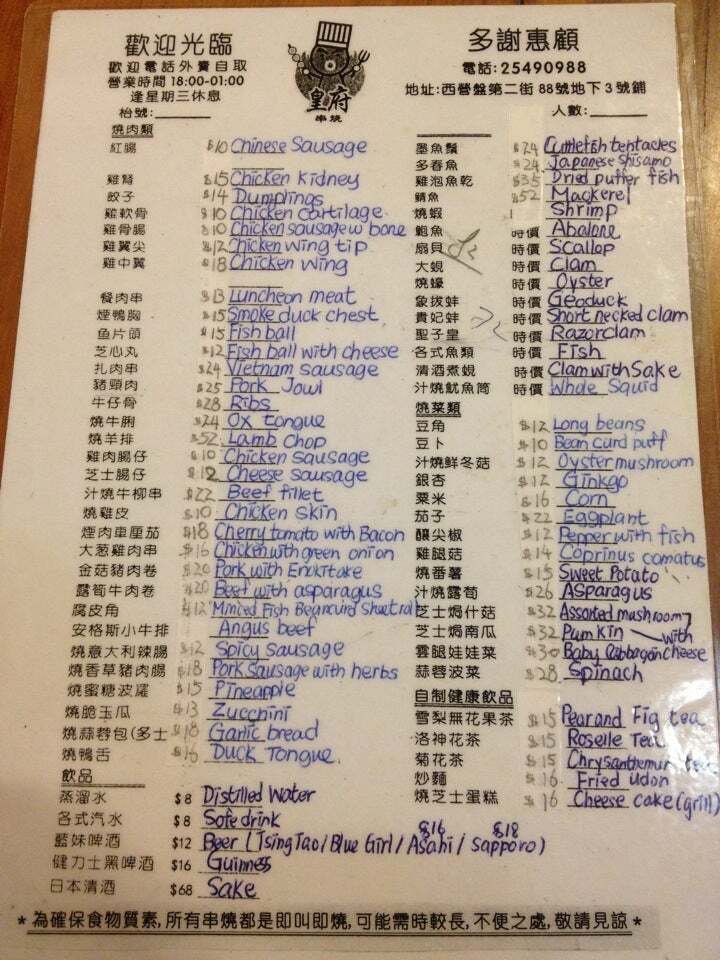 歡迎光臨
歡迎電話外賣自取
營業時間 18:00-01:00
逢星期三休息
皇府
串燒
多謝惠顧
電話:25490988
地址:西營盤第二街 88號地下3號鋪
枱號:
人數:
燒肉類
紅腸 $10 Chinese Sausage
雞腎 $15 Chicken kidney
餃子 $14 Dumplings
雞軟骨 $10 Chicken cartilage
雞骨腸 $10 Chicken sausage w bone
雞翼尖 $12 Chicken wing tip
雞中翼 $18 Chicken wing
餐肉串 $13 Luncheon meat
煙鴨胸 $15 Smoke duck chest
魚片頭 $15 Fish ball
芝心丸 $12 Fish ball with cheese
扎肉串 $24 Vietnam sausage
豬頸肉 $25 Pork Jowl
牛仔骨 $28 Ribs
燒牛脷 $24 Ox tongue
燒羊排 $52 Lamb chop
雞肉腸仔 $10 Chicken sausage
芝士腸仔 $12 Cheese sausage
汁燒牛柳串 $22 Beef fillet
燒雞皮 $10 Chicken skin
煙肉車厘茄 $18 Cherry tomato with Bacon
大葱雞肉串 $16 Chicken with green onion
金菇豬肉卷 $20 Pork with Enokitake
露筍牛肉卷 $20 Beef with asparagus
腐皮角 $12 Minced Fish Beancurd Sheet roll
安格斯小牛排 Angus beef
燒意大利辣腸 $12 Spicy Sausage
燒香草豬肉腸 $18 Pork Sausage with herbs
燒蜜糖波蘿 $15 Pineapple
燒脆玉瓜 $13 Zucchini
燒蒜蓉包(多士 $18 Garlic bread
燒鴨舌 $16 Duck Tongue.
飲品
蒸溜水 $8 Distilled Water
各式汽水 $8 Sofe drink
藍妹啤酒 $12 Beer (TsingTao/Blue Girl/Asahi/Sapporo)
$16 $18
健力士黑啤酒 $16 Guinness
日本清酒 $68 Sake
墨魚鬚 $24 Cuttlefish tentacles
多春魚 $24 Japanese Shisamo
雞泡魚乾 $35 Dried puffer fish
鯖魚 $52 Mackerel
燒蝦 Shrimp
鮑魚 時價 Abalone
扇貝 時價 Scallop
大蜆 時價 Clam
燒蠔 時價 Oyster
象拔蚌 時價 Geoduck
貴妃蚌 時價 Short necked clam
聖子皇 時價 Razorclam
各式魚類 時價 Fish
清酒煮蜆 時價 Clam with Sake
汁燒魷魚筒 時價 Whole Squid
燒菜類
豆角 $12 Long beans
豆卜 $10 Bean curd puff
汁燒鮮冬菇 $12 Oyster mushroom
銀杏 $12 Ginkgo
粟米 $16 Corn
茄子 $22 Eggplant
釀尖椒 $12 Pepper with fish
雞腿菇 $14 Coprinus comatus
燒番薯 $15 Sweet Potato
汁燒露荀 $26 Asparagus
芝士焗什菇 $32 Assorted mushroom
芝士焗南瓜 $32 Pumkin with cheese
雲腿娃娃菜 $30 Baby Cabbage
蒜蓉菠菜 $28 Spinach
自制健康飲品
雪梨無花果茶 $15 Pear and Fig tea
洛神花茶 $15 Roselle Tea
菊花茶 $15 Chrysanthemum tea
炒麵 $16 Fried udon
燒芝士蛋糕 $16 Cheese cake (grill)
*為確保食物質素,所有串燒都是即叫即燒,可能需時較長,不便之處,敬請見諒*